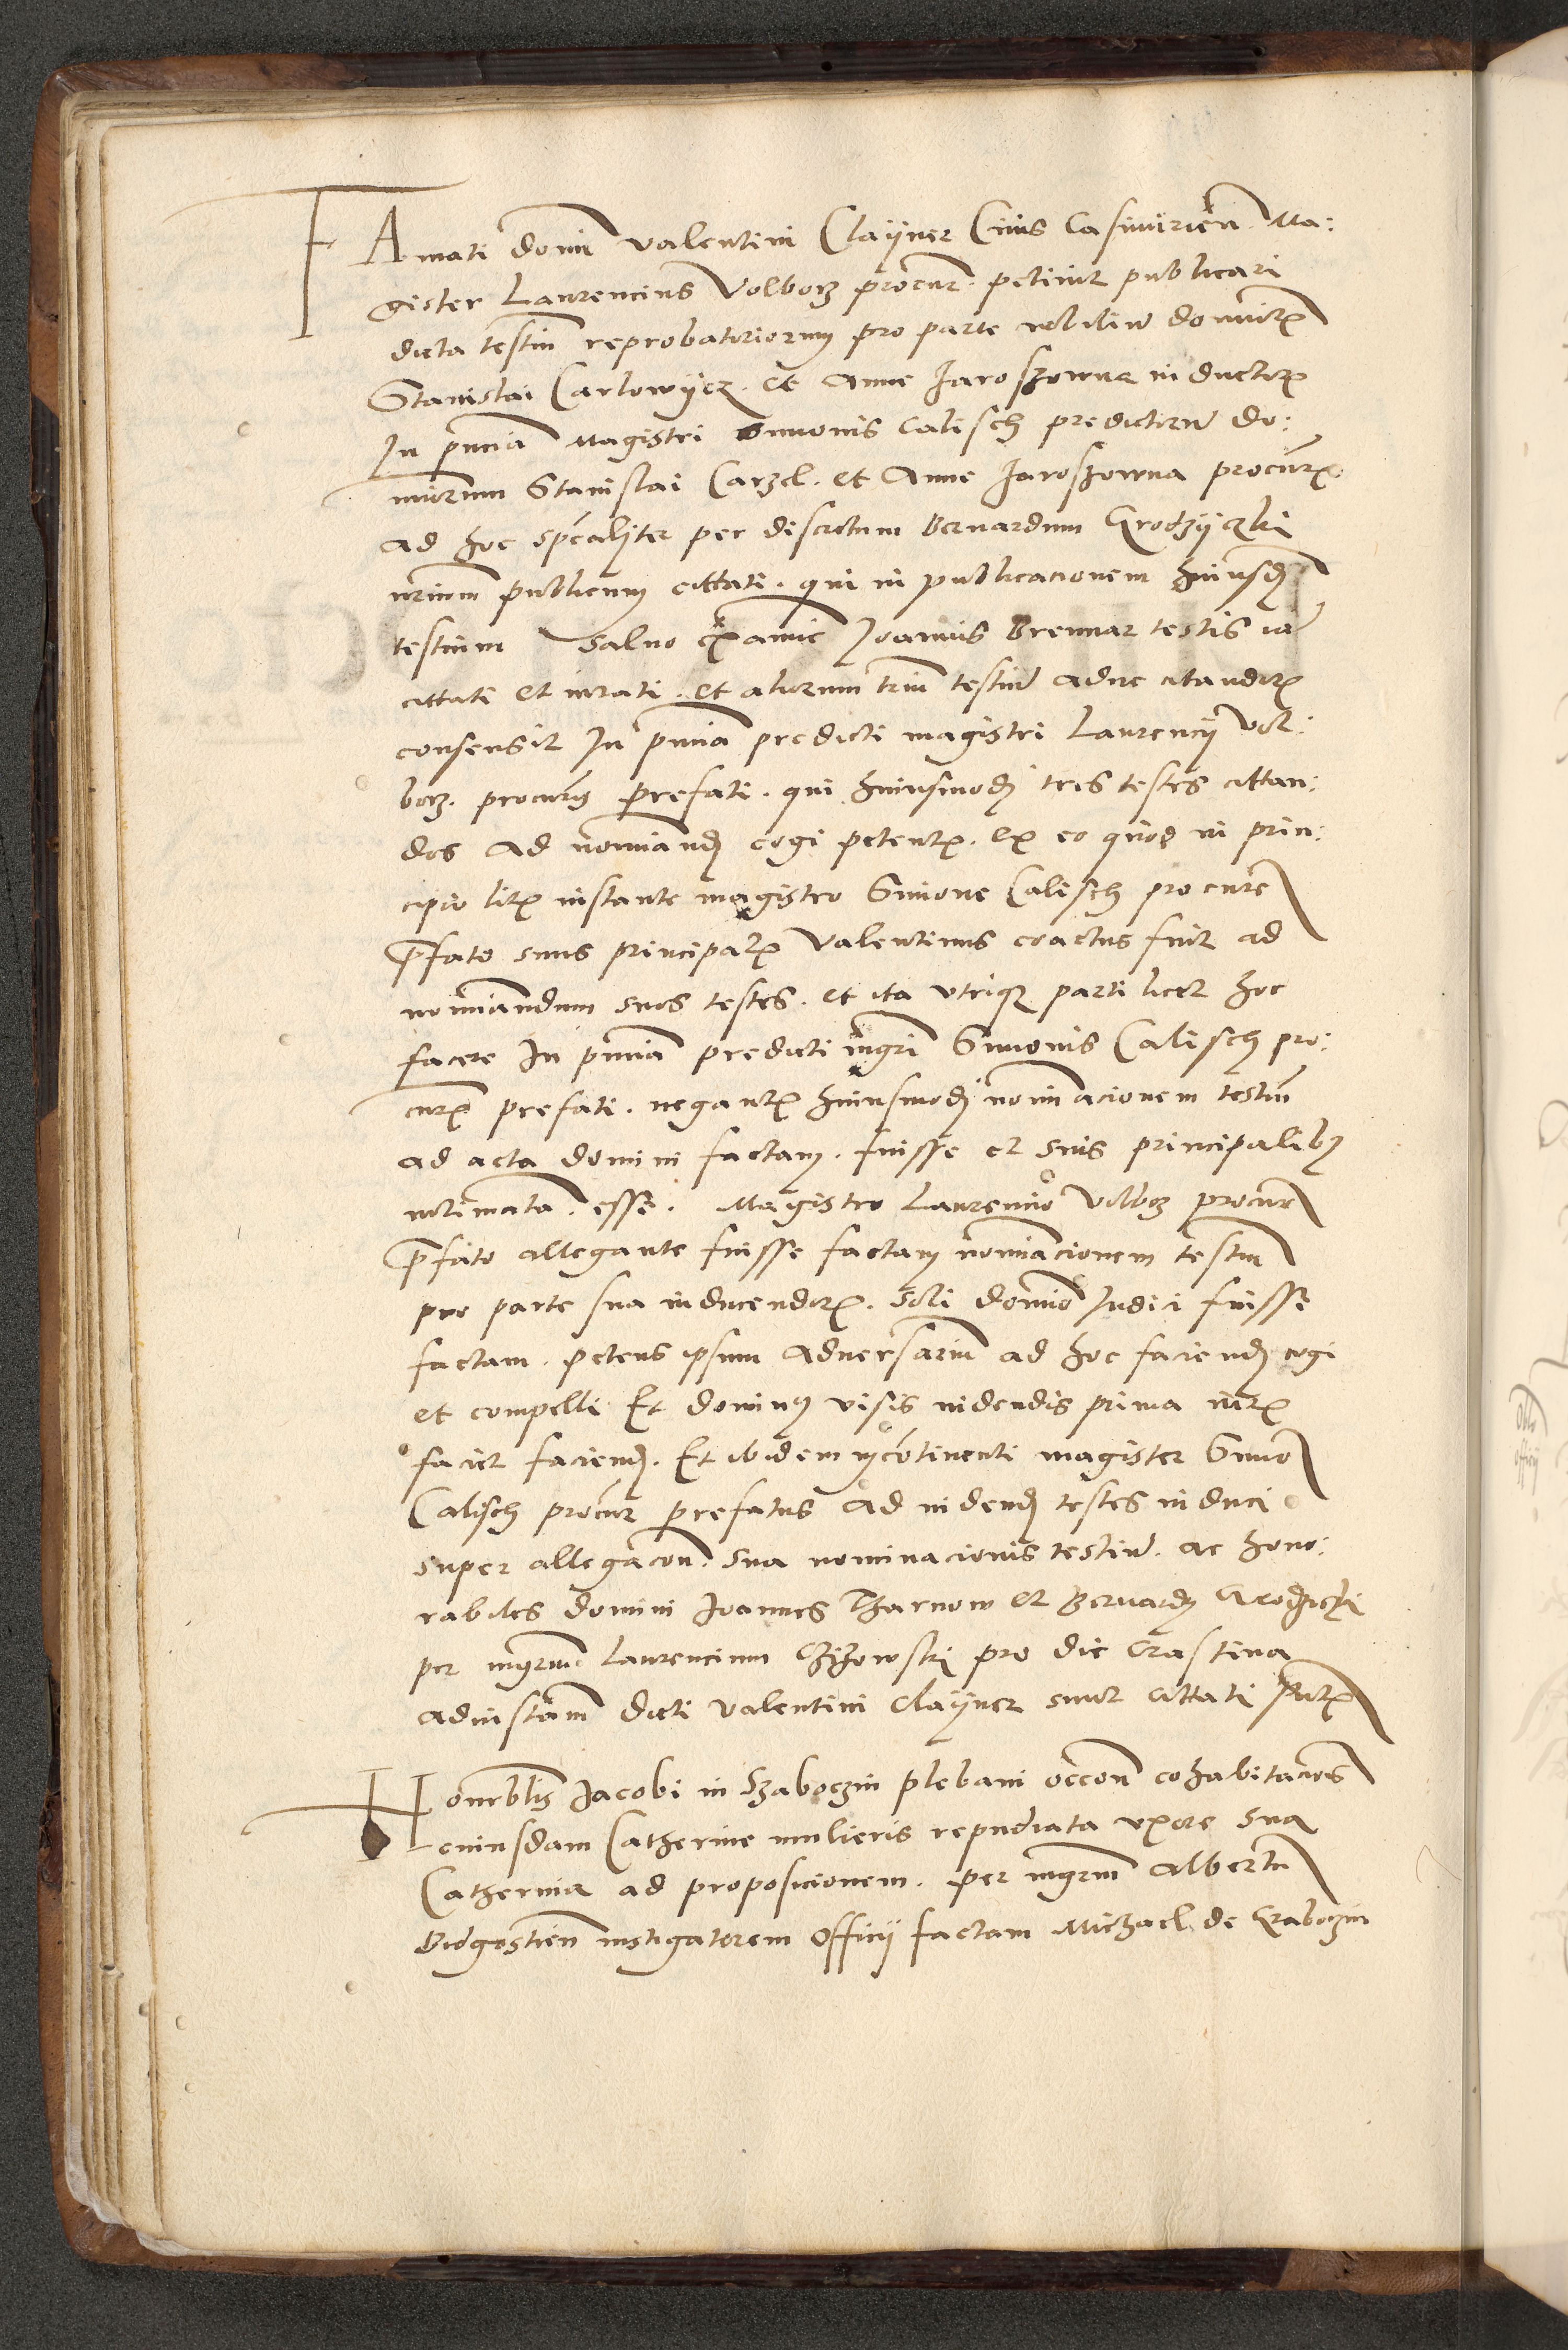 FAmati domi valentini Claÿner Civis Casimirien Ma:
gister Laurencius Volborz procur. petivit publicari
dicta testium reprobatoriorum pro parte nobilium dominor
Stanislai Carlowÿcz. et Anne Jaroszowna inductor
In pncia Magistri Simonis Calisch predictorum do:
minorum Stanislai Carzel. et Anne Jaroszowna procur
ad hoc specialiter per discretum Bernardum Grodzÿczki
nrium publicum cittati. qui in publicacionem huiusd
testium salvo examine Joannis Brennar testis iam
cittati et iurati. et aliorum trium testium adhuc citandor
consensit In pncia predicti magistri Laurencij Vol:
borz. procuris prefati. qui huiusmodi tres testes cittan:
dos ad nominand cogi petentis. ex eo quod in prin:
cipio litis instante magistro Simone Calisch procure
pfato suus principalis Valentinus coactus fuit ad
nominandum suos testes. et ita utrique parti licet hoc
facere In pncia predicti mgri Simonis Calisch pro:
curis prefati. negantis huiusmodi nominacionem testium
ad acta domini factam. fuisse et suis principalibus
intimata. esse. Magistro Laurencio Volborz procur
pfato allegante fuisse factam nominacionem testium
pro parte sua inducendor. soli domino Iudici fuisse
factam. petens ipsum adversarium ad hoc faciend cogi
et compelli Et dominus visis videndis prima iuris
faciet faciend. Et ibidem incotinenti magister Simo
Calisch procur prefatus ad vidend testes induci
super allegacon. sua nominacionis testium. ac hono:
rabiles domini Joannes Tharnow et Bernardus Grodziczki
per mgrum Laurencium Czizowski pro die Crastina
ad instam dicti Valentini Claÿner sunt cittati
Honrblis Jacobi in Szaboczin plebani occon cohabitacois
cuiusdam Catherine mulieris repudiata uxore sua
Catherina ad proposicionem. per mgrum Albertum
Bidgostien instigatorem Officij factam Michael de Grabozin